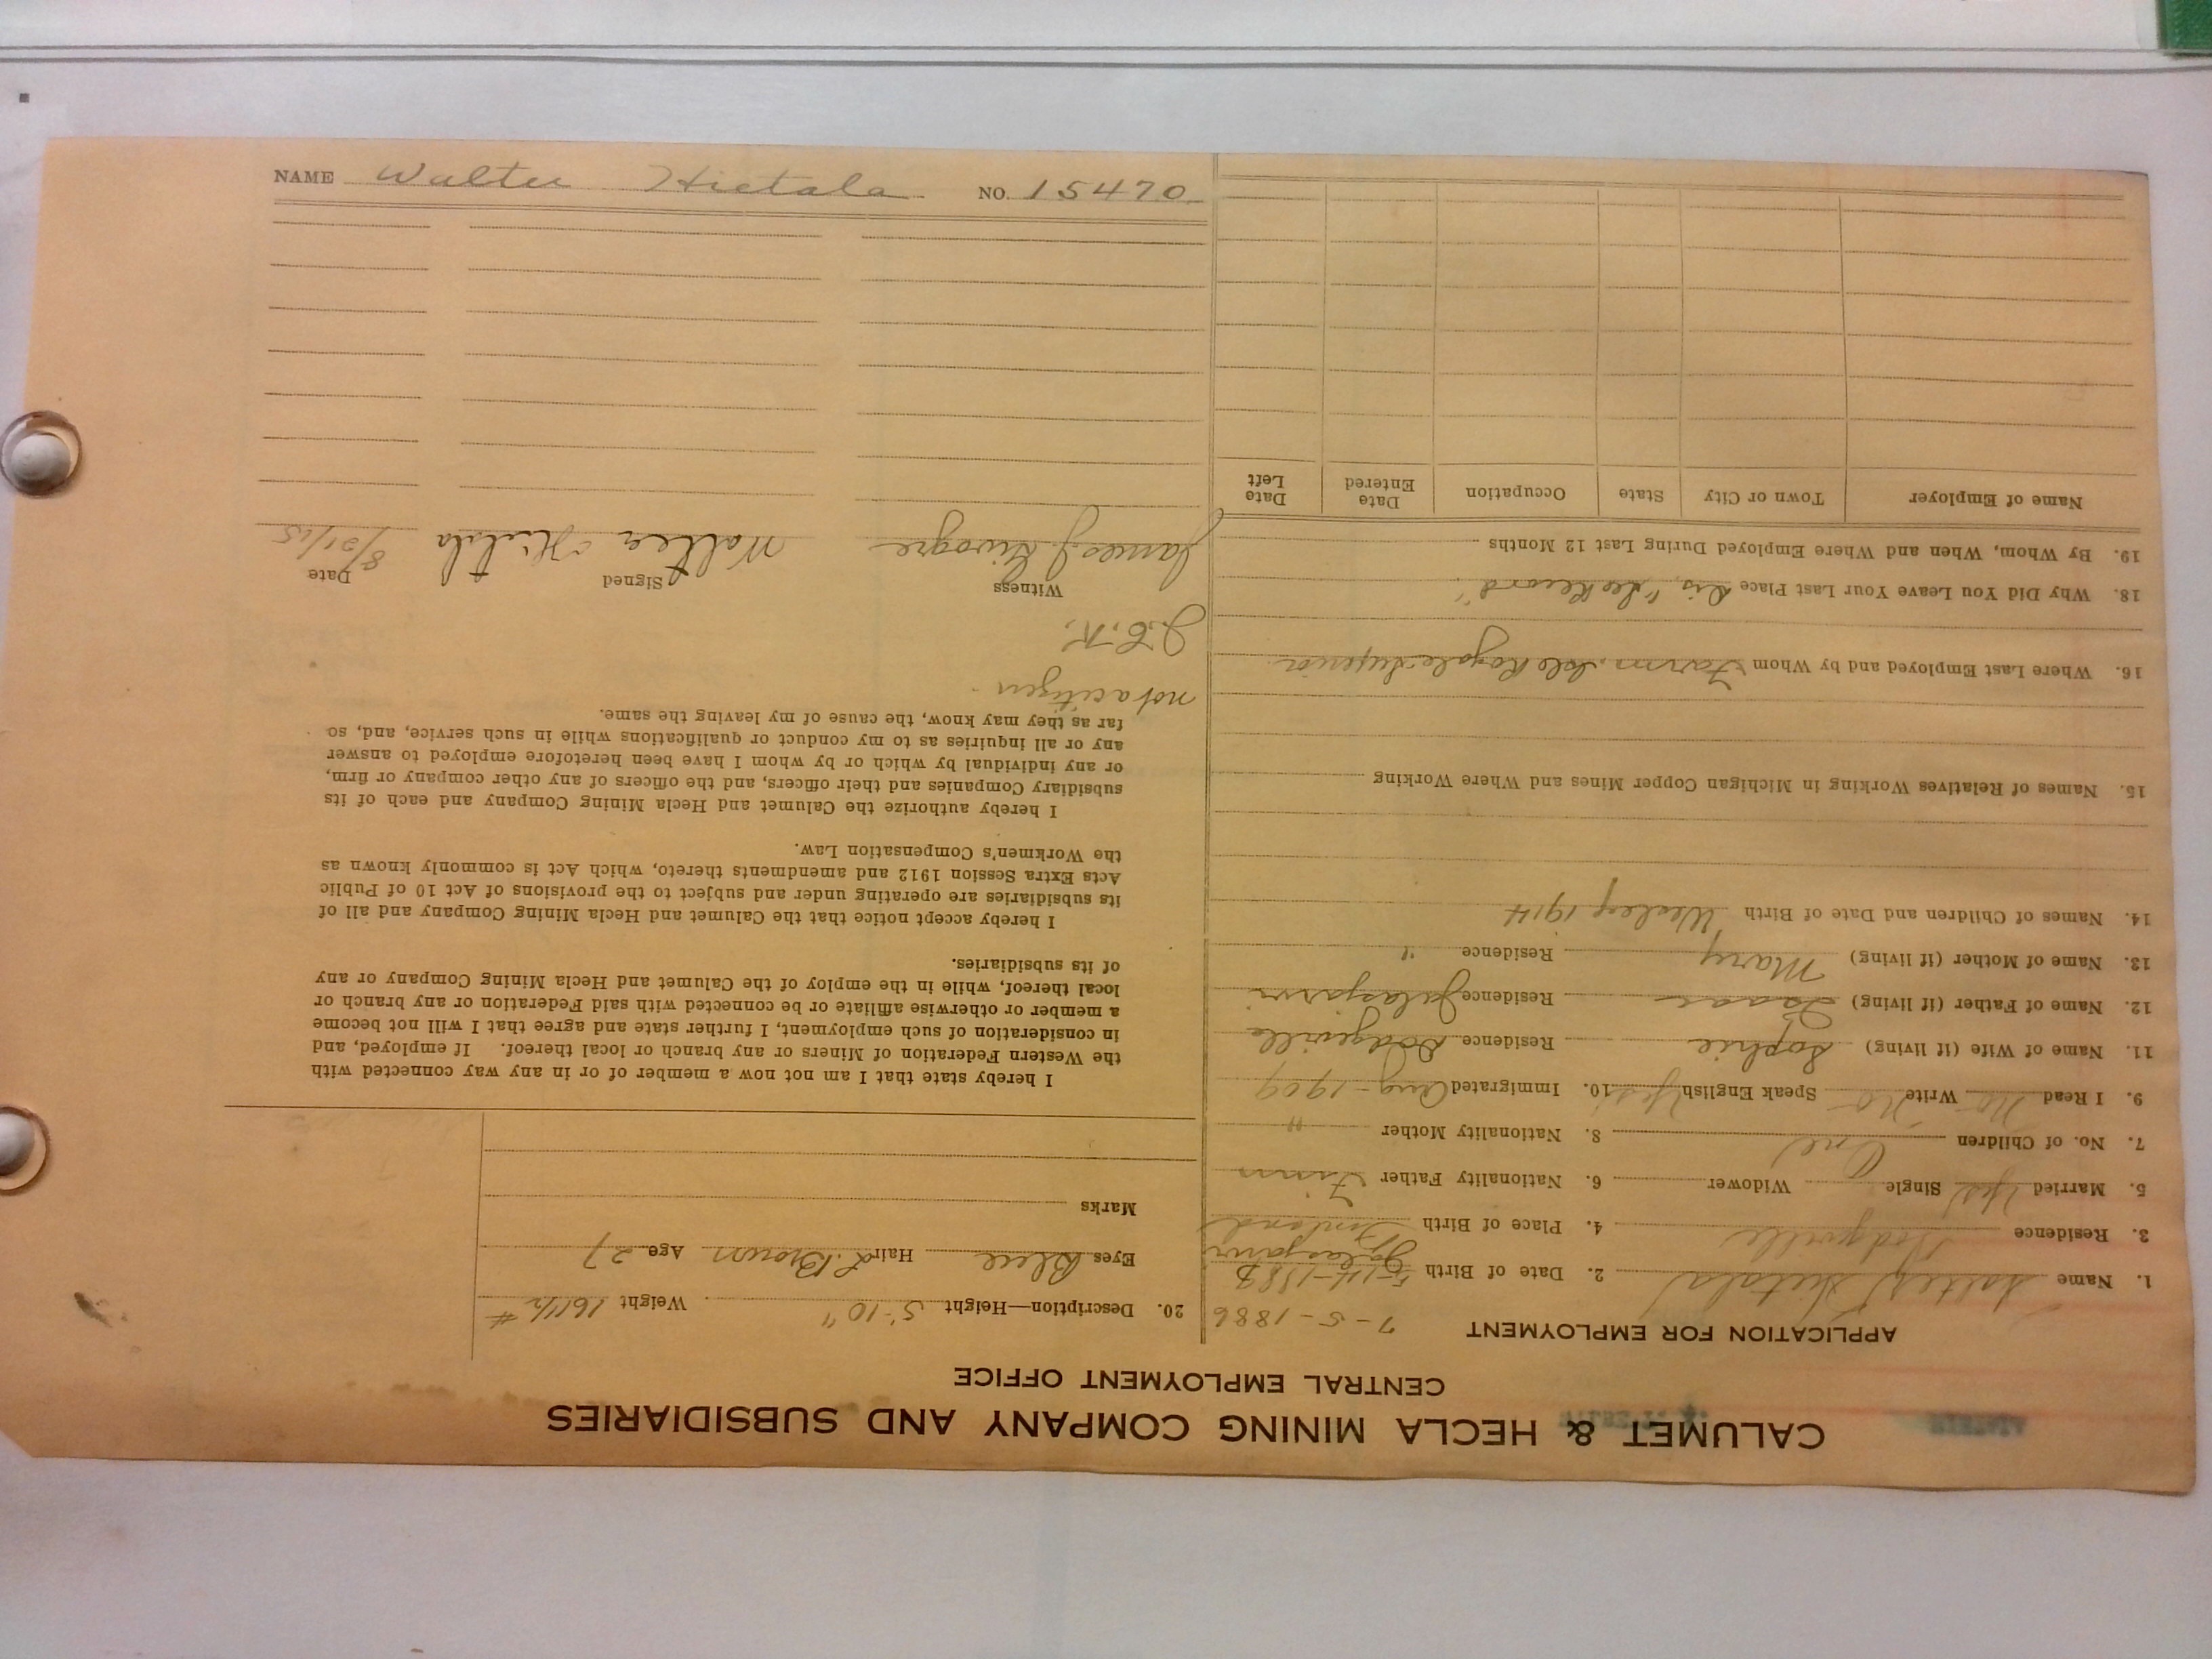 CALUMET & HECLA MINING COMPANY AND SUBSIDIARIES
CENTRAL EMPLOYMENT OFFICE
APPLICATION FOR EMPLOYMENT
7-5-1886
1. Name Walter Hietala 2. Date of Birth 5-14-1888
3. Residence Dodgeville 4. Place of Birth Jalasjarvi Finland
5. Married Yes Single Widower 6. Nationality Father Finn
7. No. of Children One 8. Nationality Mother "
9. I Read No Write No Speak English Yes 10. Immigrated Aug-1909
11. Name of Wife (if living) Sophie Residence Dodgeville
12. Name of Father (if living) Isaac Residence Jalasjarvi
13. Name of Mother (if living) Mary Residence "
14. Names of Children and Date of Birth Wesley 1914
15. Names of Relatives Working in Michigan Copper Mines and Where Working
16. Where Last Employed and by Whom Farm, Isle Royale Superior
18. Why Did You Leave Your Last Place Dis. "See Record"
19. By Whom, When and Where Employed During Last 12 Months
Name of Employer Town or City State Occupation Date Entered Date Left
20. Description—Height 5'-10" Weight 161 1/2 #
Eyes Blue Hair L. Brown Age 27
Marks
I hereby state that I am not now a member of or in any way connected with
the Western Federation of Miners or any branch or local thereof. If employed, and
in consideration of such employment, I further state and agree that I will not become
a member or otherwise affiliate or be connected with said Federation or any branch or
local thereof, while in the employ of the Calumet and Hecla Mining Company or any
of its subsidiaries.
I hereby accept notice that the Calumet and Hecla Mining Company and all of
its subsidiaries are operating under and subject to the provisions of Act 10 of Public
Acts Extra Session 1912 and amendments thereto, which Act is commonly known as
the Workmen's Compensation Law.
I hereby authorize the Calumet and Hecla Mining Company and each of its
subsidiary Companies and their officers, and the officers of any other company or firm,
or any individual by which or by whom I have been heretofore employed to answer
any or all inquiries as to my conduct or qualifications while in such service, and, so
far as they may know, the cause of my leaving the same.
not a citizen
J.E.K.
Witness Signed Date
James J. Walter Hietala 8/21/15
NAME Walter Hietala NO. 15470